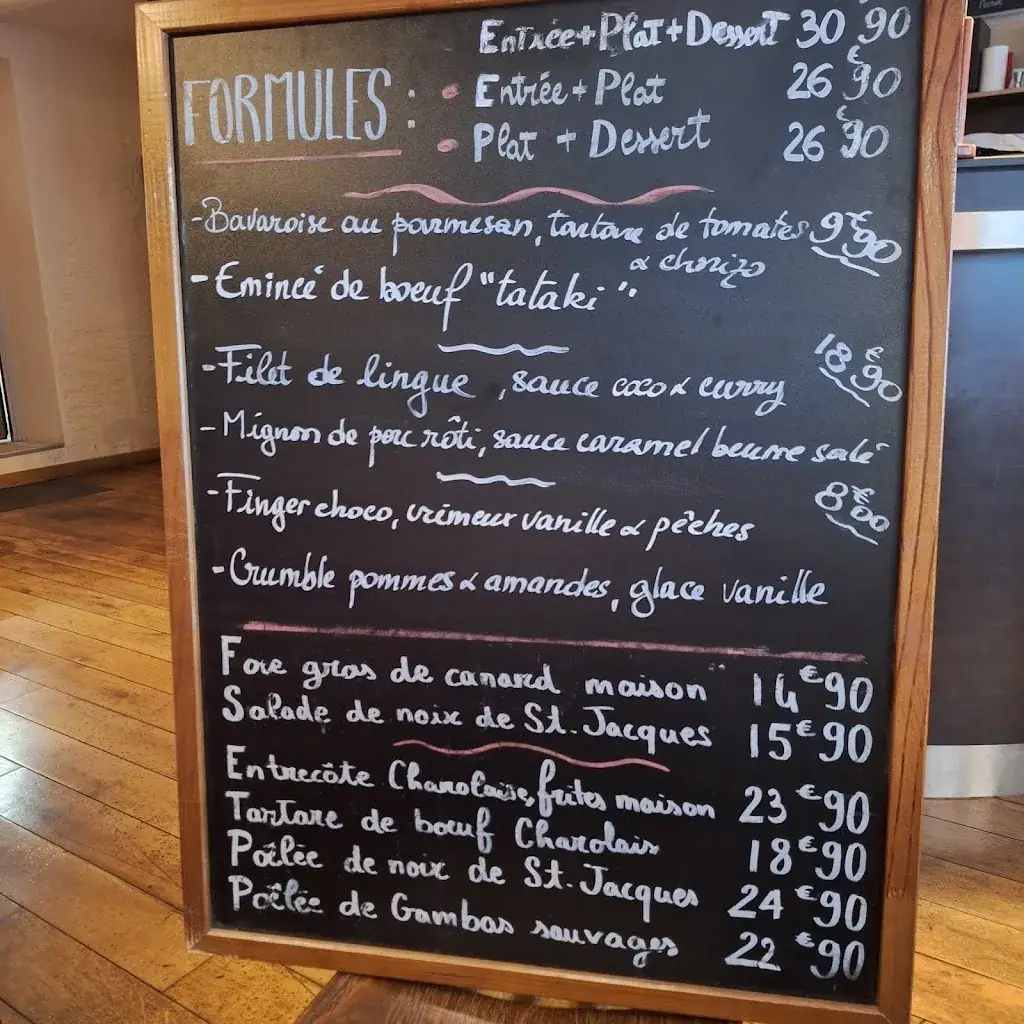 Entrée+Plat+Dessert 30€90
FORMULES : • Entrée + Plat 26€90
• Plat + Dessert 26€90
- Bavaroise au parmesan, tartare de tomates 9€90
& chorizo
- Emincé de boeuf "tataki".
- Filet de lingue, sauce coco & curry 18€90
- Mignon de porc rôti, sauce caramel beurre salé
- Finger choco, crémeux vanille & pêches 8€00
- Crumble pommes & amandes, glace vanille
Foie gras de canard maison 14€90
Salade de noix de St. Jacques 15€90
Entrecôte Charolaise, frites maison 23€90
Tartare de boeuf Charolais 18€90
Poêlée de noix de St. Jacques 24€90
Poêlée de Gambas sauvages 22€90